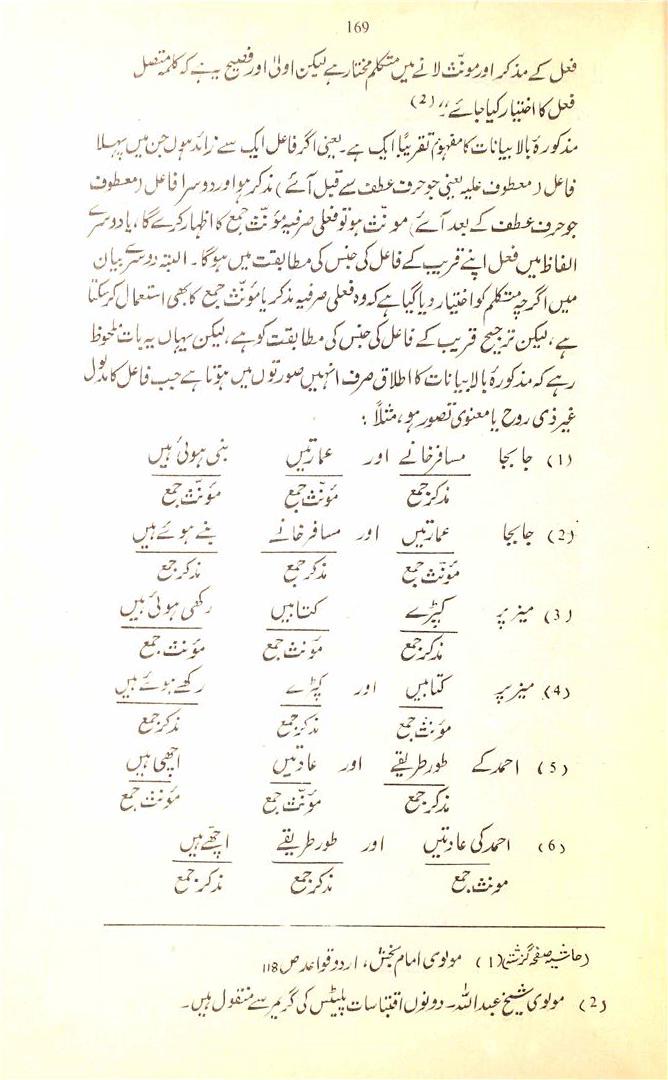 169
فعل کے مذکر اور مونّث لانے میں متکلم مختار ہے لیکن اولیٰ اور فصیح یہ ہے کہ کلمہ متصل
فعل کا اختیار کیا جائے۔" (2)
مذکورۂ بالا بیانات کا مفہوم تقریبًا ایک ہے۔ یعنی اگر فاعل ایک سے زائد ہوں جن میں پہلا
فاعل (معطوف علیہ یعنی جو حرف عطف سے قبل آئے) مذکر ہو اور دوسرا فاعل (معطوف
جو حرف عطف کے بعد آئے) مونّث ہو تو فعلی صرفیہ مؤنّث جمع کا اظہار کرے گا، یا دوسرے
الفاظ میں فعل اپنے قریب کے فاعل کی جنس کی مطابقت میں ہوگا۔ البتہ دوسرے بیان
میں اگرچہ متکلم کو اختیار دیا گیا ہے کہ وہ فعلی صرفیہ مذکر یا مؤنّث جمع کا بھی استعمال کر سکتا
ہے، لیکن ترجیح قریب کے فاعل کی جنس کی مطابقت کو ہے، لیکن یہاں یہ بات ملحوظ
رہے کہ مذکورۂ بالا بیانات کا اطلاق صرف انہیں صورتوں میں ہوتا ہے جب فاعل کا مدلول
غیر ذی روح یا معنوی تصور ہو، مثلاً :
(1) جا بجا مسافر خانے اور عمارتیں بنی ہوئی ہیں
مذکر جمع مؤنّث جمع مؤنّث جمع
(2) جا بجا عمارتیں اور مسافر خانے بنے ہوئے ہیں
مؤنّث جمع مذکر جمع مذکر جمع
(3) میز پر کپڑے کتابیں رکھی ہوئی ہیں
مذکر جمع مؤنّث جمع مؤنّث جمع
(4) میز پر کتابیں اور کپڑے رکھے ہوئے ہیں
مؤنّث جمع مذکر جمع مذکر جمع
(5) احمد کے طور طریقے اور عادتیں اچھی ہیں
مذکر جمع مؤنّث جمع مؤنّث جمع
(6) احمد کی عادتیں اور طور طریقے اچھے ہیں
مونث جمع مذکر جمع مذکر جمع
(حاشیہ صفحہ گزشتہ) (1) مولوی امام بخش، اردو قواعد ص 118
(2) مولوی شیخ عبداللہ۔ دونوں اقتباسات پلیٹس کی گریمر سے منقول ہیں۔